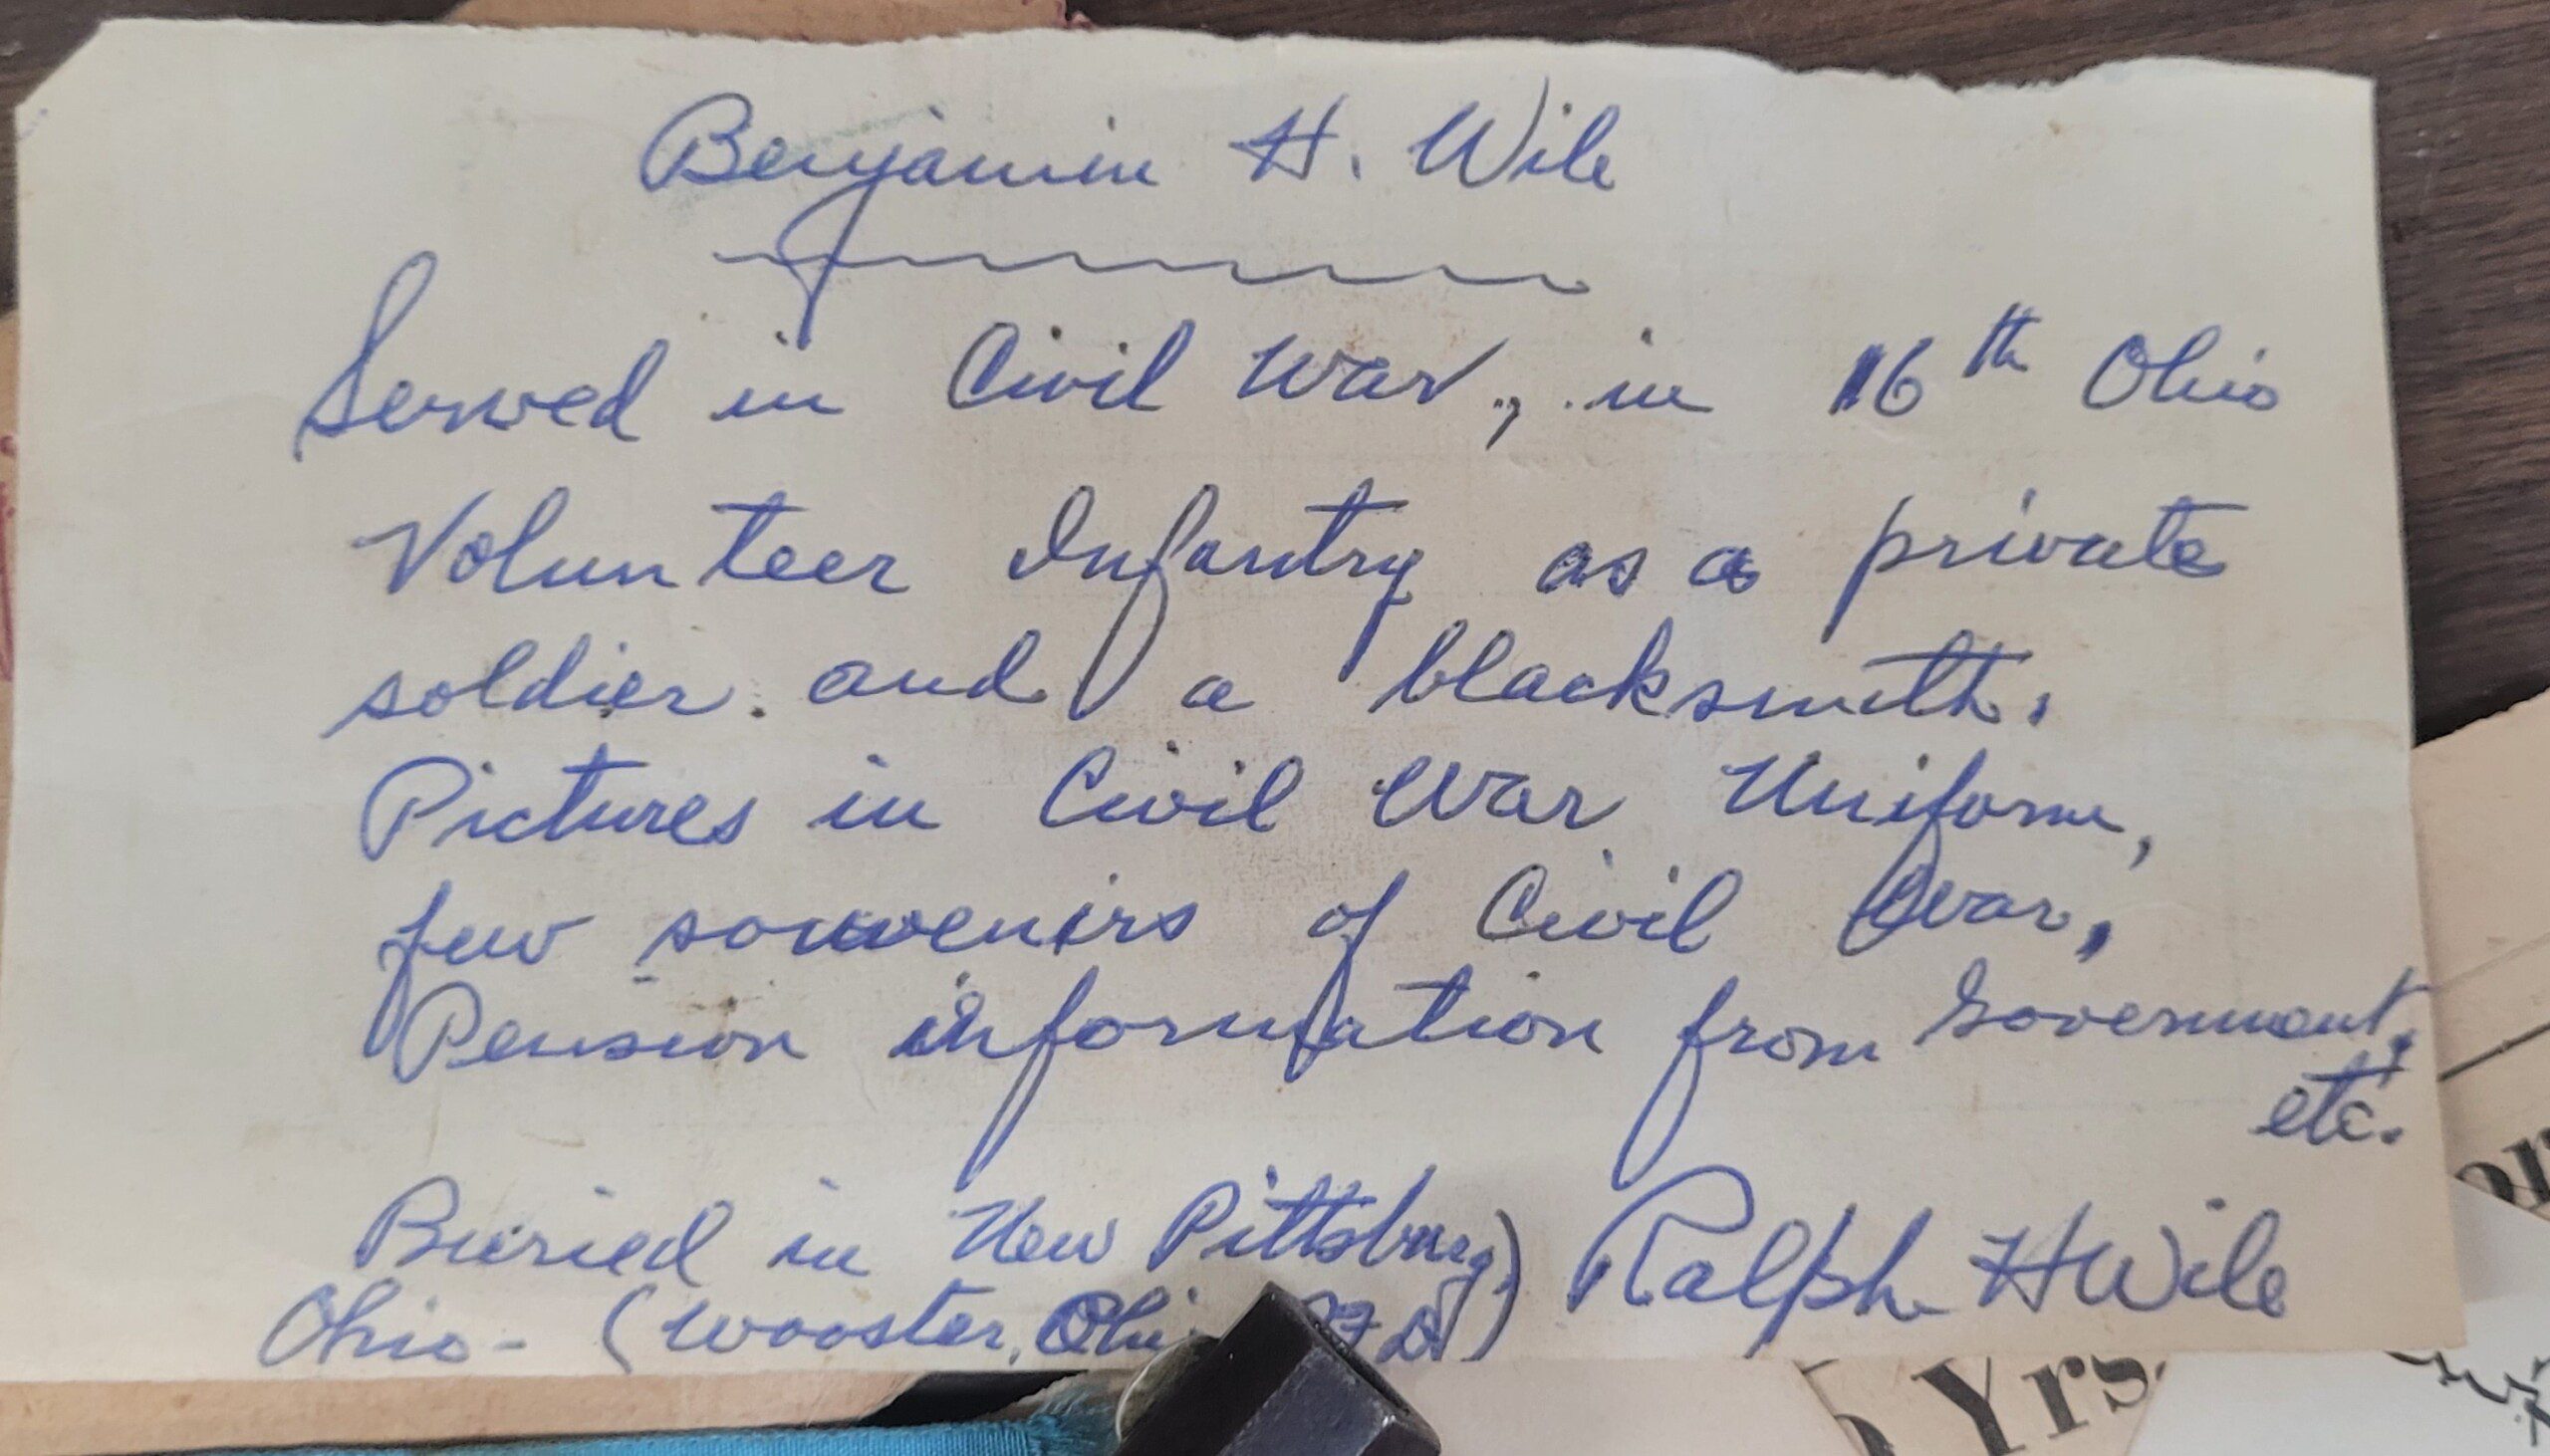 Benjamin H. Wile
Served in Civil War, in 16th Ohio
Volunteer Infantry as a private
soldier and a blacksmith.
Pictures in Civil War Uniform,
few souvenirs of Civil War,
Pension information from Government,
etc.
Buried in New Pittsburg, Ralph H Wile
Ohio - (Wooster, Ohio
Yrs